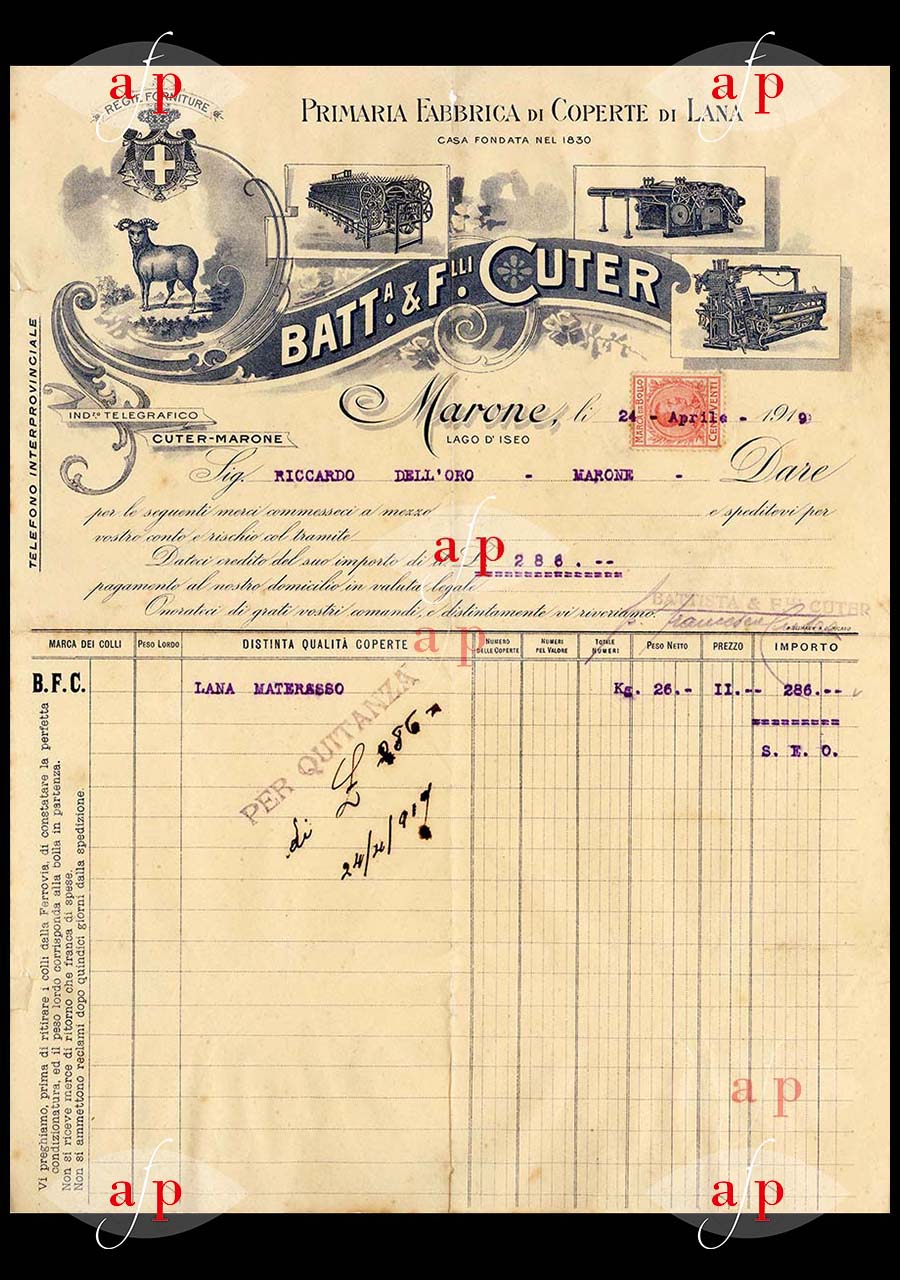 REGIE FORNITURE
PRIMARIA FABBRICA DI COPERTE DI LANA
CASA FONDATA NEL 1830
BATT.A & F.LLI CUTER
TELEFONO INTERPROVINCIALE
IND.ZO TELEGRAFICO
CUTER-MARONE
Marone, li 24 - Aprile - 1919
LAGO D'ISEO
MARCA DA BOLLO
CENT. VENTI
Sig. RICCARDO DELL'ORO - MARONE - Dare
per le seguenti merci commesseci a mezzo e speditevi per
vostro conto e rischio col tramite
Dateci credito del suo importo di it. L. 286.--
pagamento al nostro domicilio in valuta legale
Onorateci di grati vostri comandi, e distintamente vi riveriamo.
BATTISTA & F.LLI CUTER
MARCA DEI COLLI PESO LORDO DISTINTA QUALITÀ COPERTE NUMERO DELLE COPERTE NUMERI PEL VALORE TOTALE NUMERI PESO NETTO PREZZO IMPORTO
B.F.C. LANA MATERASSO Kg. 26.- II.-- 286.--
S. E. O.
PER QUITANZA
di £ 286
24/4/919
Vi preghiamo, prima di ritirare i colli dalla Ferrovia, di constatare la perfetta
condizionatura, ed il peso lordo corrisponda alla bolla in partenza.
Non si riceve merce di ritorno che franca di spese.
Non si ammettono reclami dopo quindici giorni dalla spedizione.
afp
afp
afp
ap
ap
afp
afp